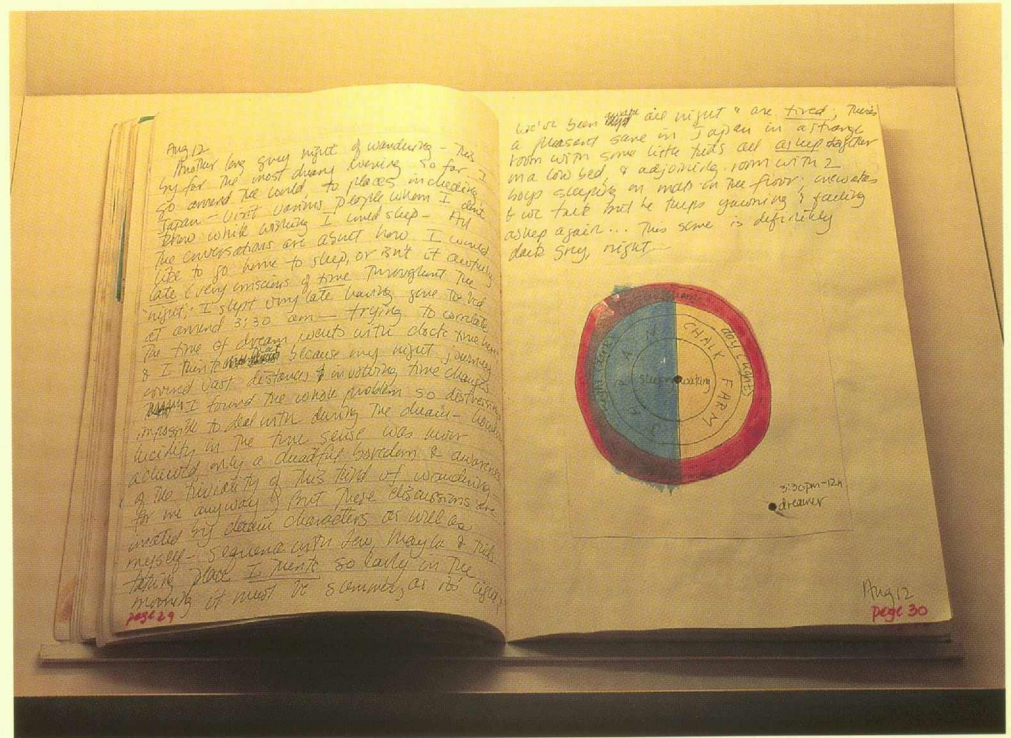 Aug 12
Another long grey night of wandering - This
by far the most dreary evening so far - I
go around the world to places including
Japan - visit various people whom I don't
know while wishing I could sleep - All
the conversations are about how I would
like to go home to sleep, or isn't it awfully
late (very conscious of time throughout the
"night;" I slept very late having gone to bed
at around 3:30 am - trying to correlate
the time of dream events with clock time
& I think because my night journey
covered vast distances & involving time changes
I found the whole problem so distressing
impossible to deal with during the dream -
lucidity in the time sense was never
achieved only a dreadful boredom & awareness
of the triviality of this kind of wandering -
for me anyway & but these discussions were
invited by dream characters as well as
myself - sequence with Lew, maybe &
taking place I think so early in the
morning it must be summer, as it's light,
page 29
we've been all night & are tired; there's
a pleasant scene in Japan in a strange
room with some little kids all asleep together
in a low bed, & adjoining room with 2
boys sleeping on mats in the floor. one wakes
& we talk but he keeps yawning & falling
asleep again... This scene is definitely
dark grey, night -
JAPAN
CHALK FARM
day (light)
sleeping
waking
3:30pm-12n
dreamer
Aug 12
page 30